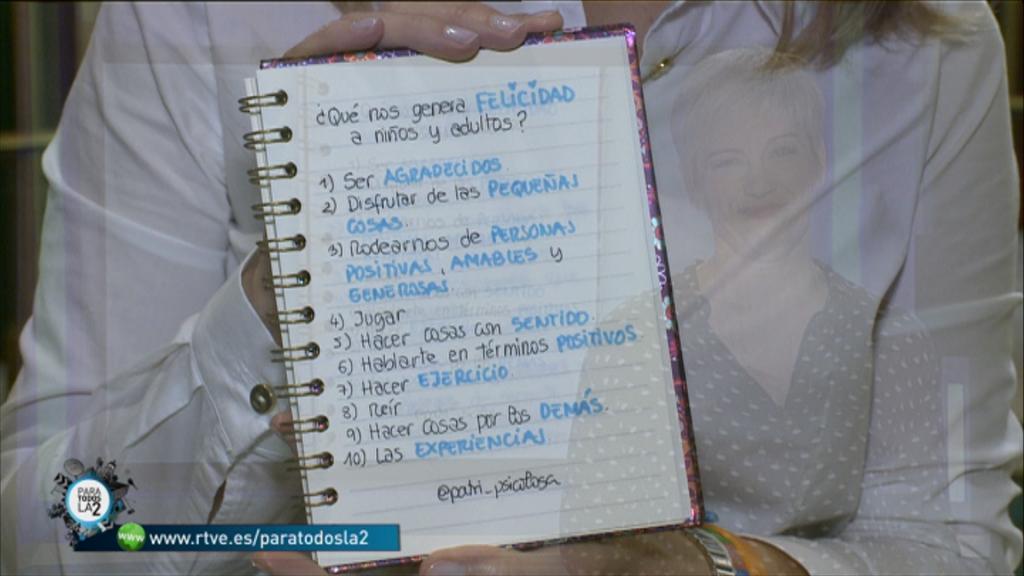 ¿Qué nos genera FELICIDAD
a niños y adultos?
1) Ser AGRADECIDOS.
2) Disfrutar de las PEQUEÑAS
COSAS.
3) Rodearnos de PERSONAS
POSITIVAS, AMABLES y
GENEROSAS.
4) Jugar
5) Hacer cosas con SENTIDO.
6) Hablarte en términos POSITIVOS.
7) Hacer EJERCICIO
8) Reír
9) Hacer cosas por los DEMÁS.
10) Las EXPERIENCIAS.
@patri_psicologa
PARA
TODOS
LA 2
www www.rtve.es/paratodosla2